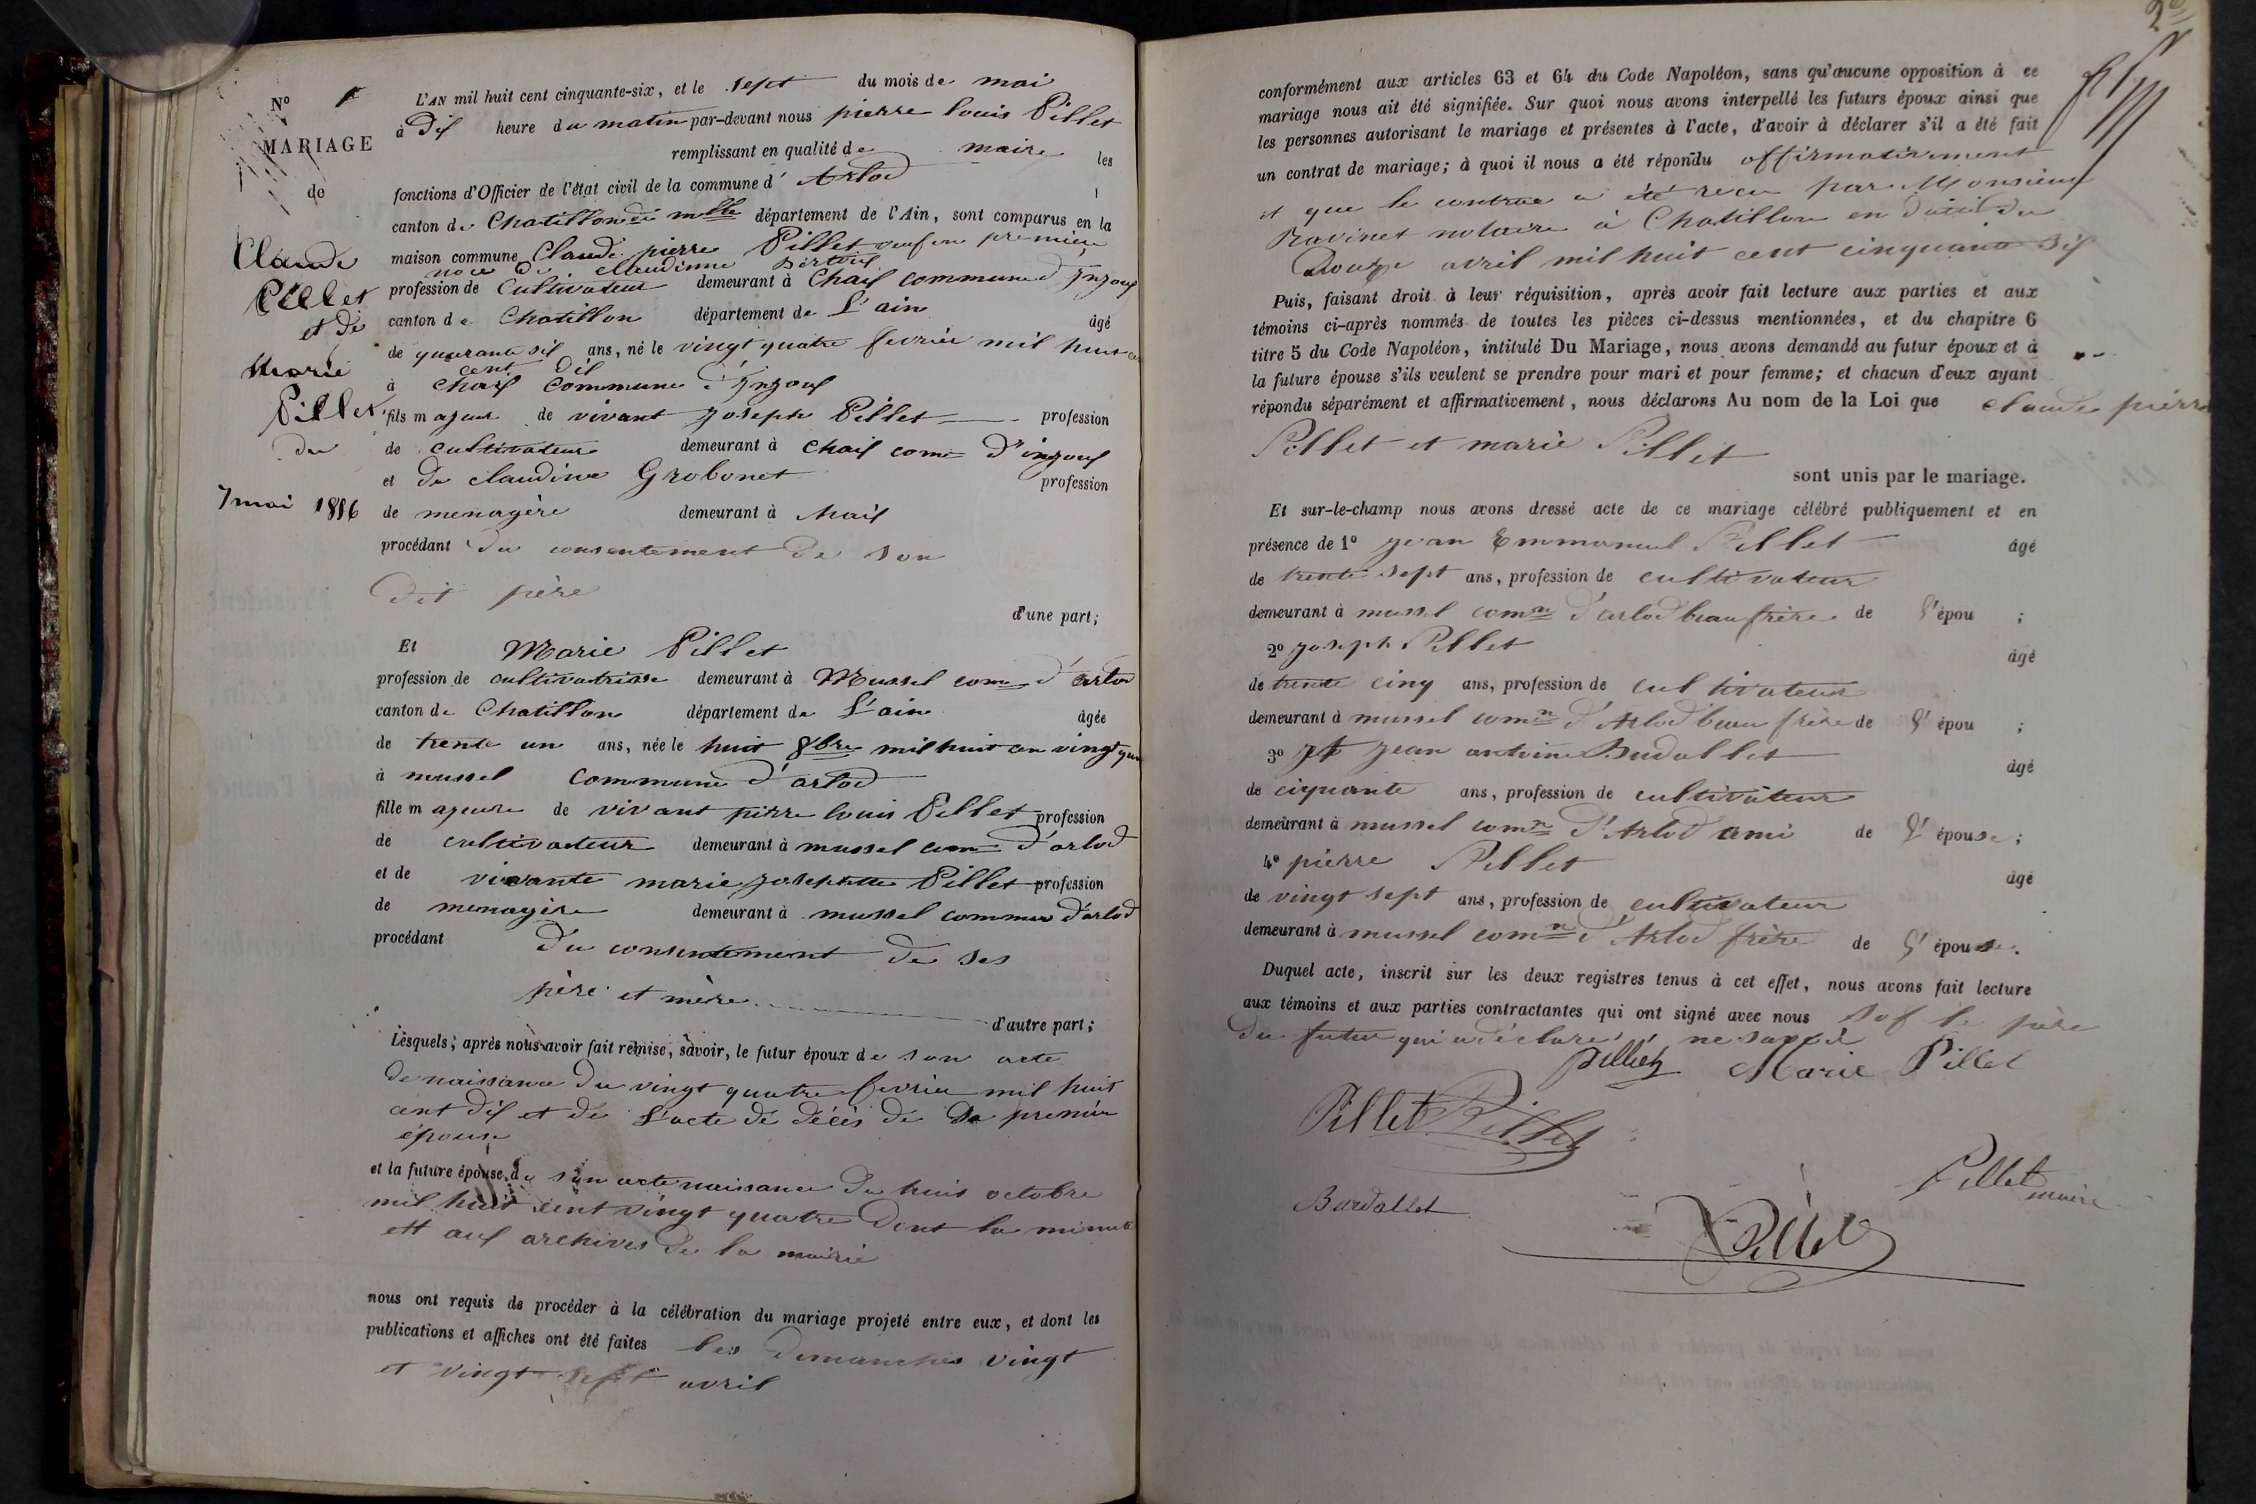 N°
MARIAGE
de
Claude
Pillet
et de
Marie
Pillet
du
7 mai 1856
L'AN mil huit cent cinquante-six, et le sept du mois de mai
à dix heure du matin par-devant nous pierre louis Pillet
remplissant en qualité de maire les
fonctions d'Officier de l'état civil de la commune d' Arlod
canton de Chatillon de mlle département de l'Ain, sont comparus en la
maison commune Claude pierre Pillet veuf en premiere
noce de claudinne
profession de Cultivateur demeurant à Chaix commune d'Injoux
canton de Chatillon département de L'ain âgé
de quarante six ans, né le vingt quatre fevrier mil huit
cent dix
à Chaix Commune d'Injoux
fils majeur de vivant joseph Pillet profession
de cultivateur demeurant à chaix com d'injoux
et de claudine Grobonet profession
de menagère demeurant à chaix
procédant du consentement de son
dit père
d'une part;
Et Marie Pillet
profession de cultivatrisse demeurant à Mussel com d'arlod
canton de Chatillon département de L'ain âgée
de trente un ans, née le huit 8bre mil huit cen vingt
à mussel Commune d'arlod
fille majeure de vivant pierre louis Pillet profession
de cultivateur demeurant à mussel com d'arlod
et de vivante marie josephette Pillet profession
de menagère demeurant à mussel commun d'arlod
procédant du consentement de ses
père et mère
d'autre part;
Lesquels, après nous avoir fait remise, savoir, le futur époux de son acte
de naissance du vingt quatre fevrier mil huit
cent dix et de L'acte de décès de sa premiere
épouse
et la future épouse de son acte naissance du huit octobre
mil huit cent vingt quatre dont la minute
ett aux archives de la mairie
nous ont requis de procéder à la célébration du mariage projeté entre eux, et dont les
publications et affiches ont été faites les dimanches vingt
et vingt sept avril
conformément aux articles 63 et 64 du Code Napoléon, sans qu'aucune opposition à ce
mariage nous ait été signifiée. Sur quoi nous avons interpellé les futurs époux ainsi que
les personnes autorisant le mariage et présentes à l'acte, d'avoir à déclarer s'il a été fait
un contrat de mariage; à quoi il nous a été répondu affirmativement
et que le contrac a été recu par Monsieur
Ravinet notaire à Chatillon en date du
Douze avril mil huit cent cinquante six
Puis, faisant droit à leur réquisition, après avoir fait lecture aux parties et aux
témoins ci-après nommés de toutes les pièces ci-dessus mentionnées, et du chapitre 6
titre 5 du Code Napoléon, intitulé Du Mariage, nous avons demandé au futur époux et à
la future épouse s'ils veulent se prendre pour mari et pour femme; et chacun d'eux ayant
répondu séparément et affirmativement, nous déclarons Au nom de la Loi que claude pierre
Pillet et marie Pillet
sont unis par le mariage.
Et sur-le-champ nous avons dressé acte de ce mariage célébré publiquement et en
présence de 1° jean Emmanuel Pillet âgé
de trente sept ans, profession de cultivateur
demeurant à mussel comne d'arlod beau frère de l'épou ;
2° joseph Pillet âgé
de trente cinq ans, profession de cultivateur
demeurant à mussel comne d'Arlod beau frère de l'épou ;
3° jean antoine Budallet âgé
de ciquante ans, profession de cultivateur
demeurant à mussel comne d'Arlod ami de l'épouse ;
4° pierre Pillet âgé
de vingt sept ans, profession de cultivateur
demeurant à mussel comne d'Arlod frère de l'épouse.
Duquel acte, inscrit sur les deux registres tenus à cet effet, nous avons fait lecture
aux témoins et aux parties contractantes qui ont signé avec nous sof le père
du futur qui a déclaré ne savoir
Pillet Marie Pillet
Pillet Pillet
Pillet maire
Burdallet
Pillet